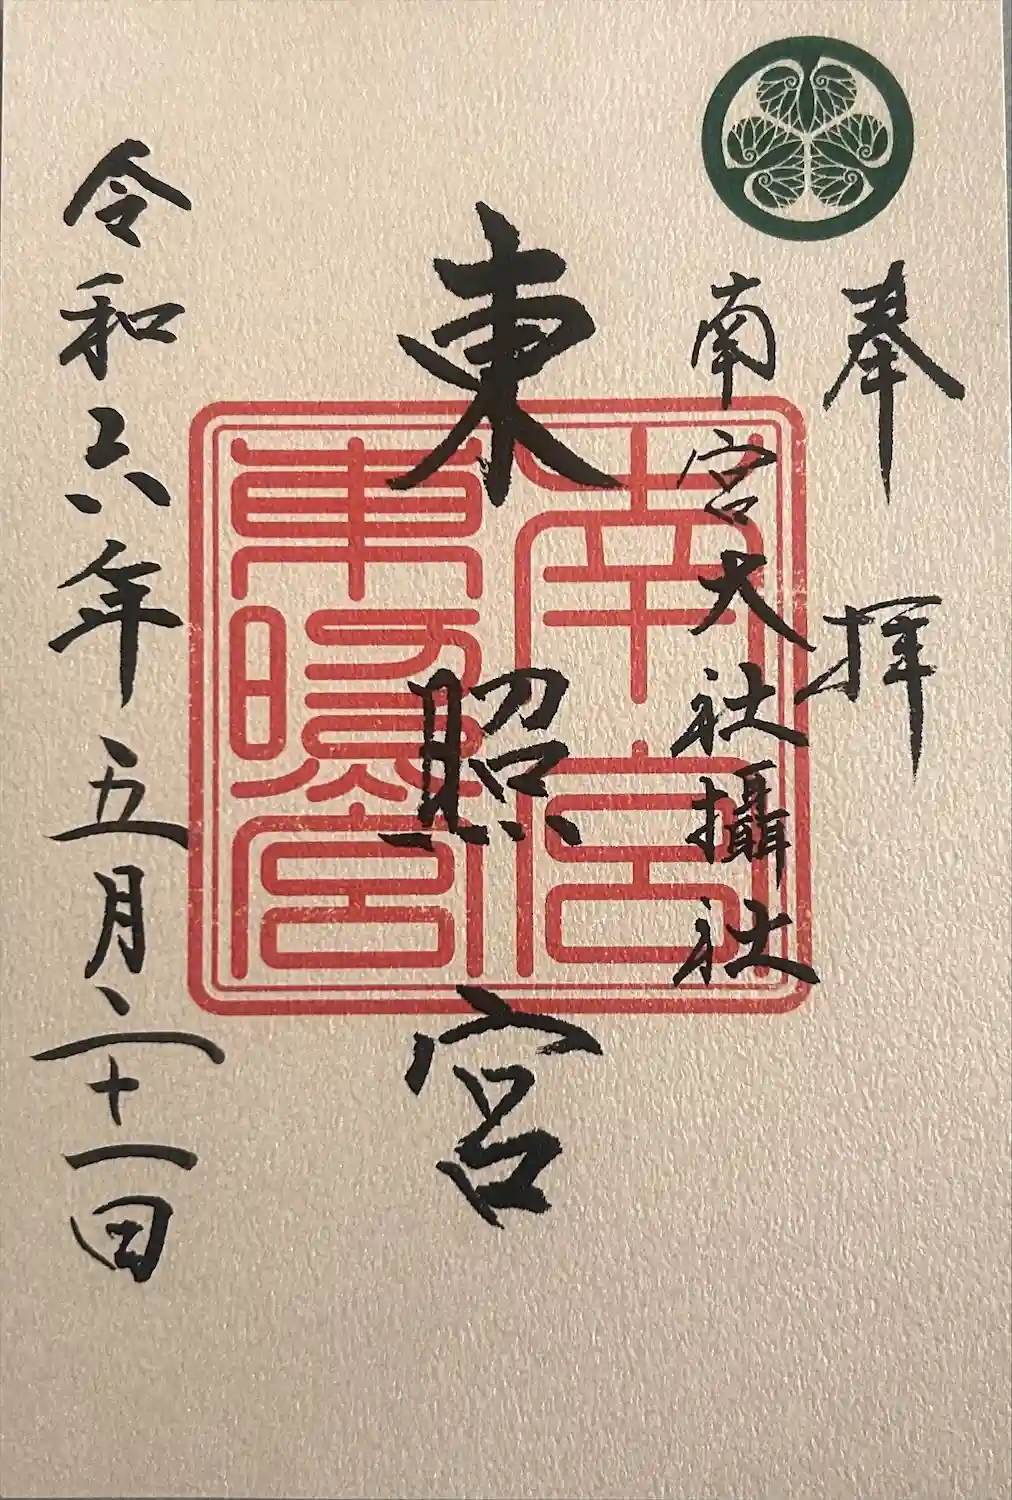 奉拝
南宮大社攝社
東照宮
南宮
東照宮
令和六年五月二十一日